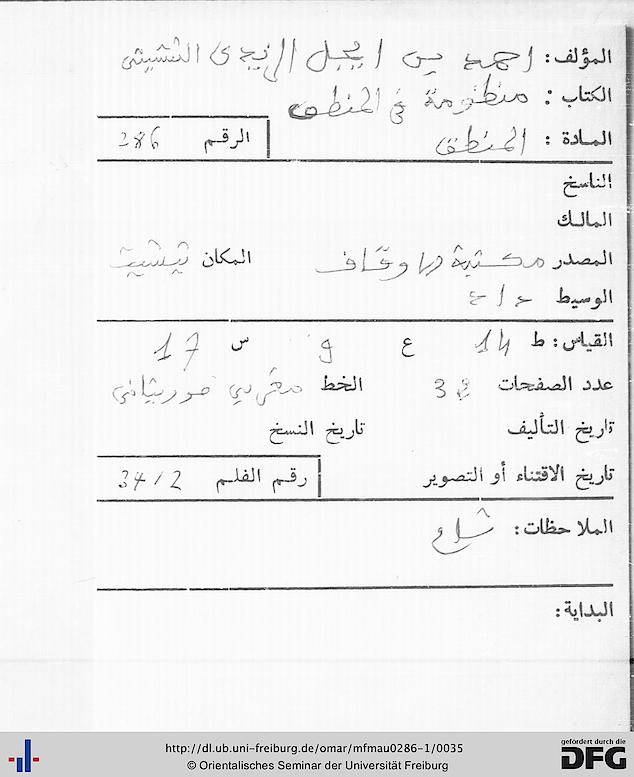 المؤلف: احمد بن ايجل الزيدى التشيتى
الكتاب: منظومة في المنطق
المادة: المنطق الرقم 286
الناسخ
المالك
المصدر مكتبة اوقاف المكان تيشيت
الوسيط
القياس: ط 14 ع 9 س 17
عدد الصفحات 32 الخط مغربي موريتاني
تاريخ التأليف تاريخ النسخ
تاريخ الاقتناء أو التصوير رقم الفلم 34/2
الملاحظات:
البداية:
http://dl.ub.uni-freiburg.de/omar/mfmau0286-1/0035
© Orientalisches Seminar der Universität Freiburg
gefördert durch die
DFG